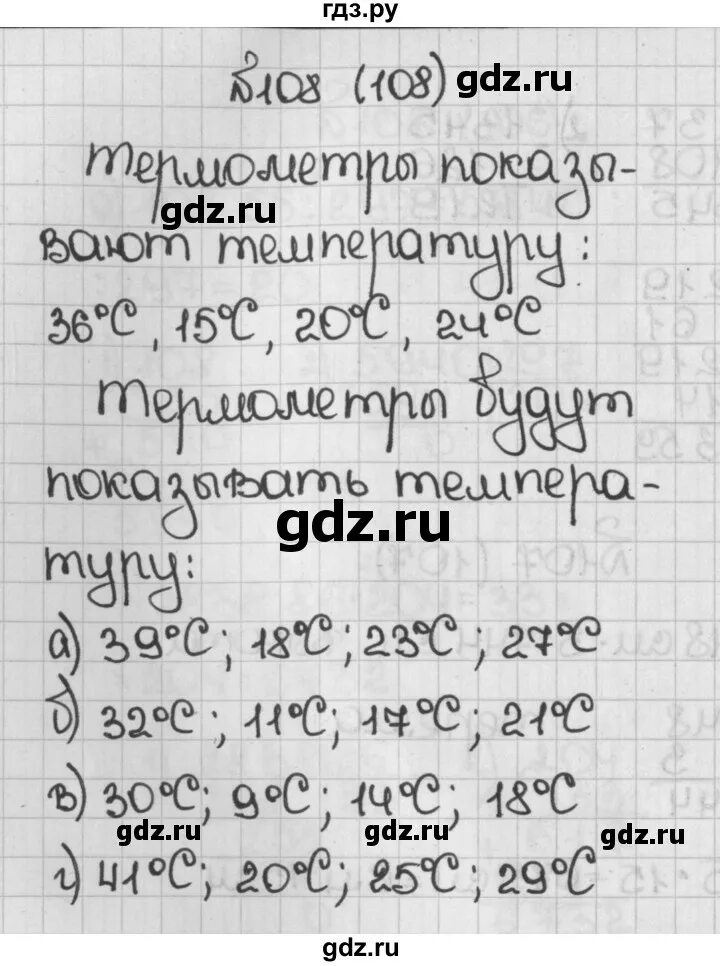 гдз.ру
№108 (108) gdz.ru
Термометры показы-
gdz.ru
вают температуру:
36°С, 15°С, 20°С, 24°С
Термометры будут
показывать темпера-
gdz.ru
туру:
а) 39°С; 18°С; 23°С; 27°С
б) 32°С; 11°С; 17°С; 21°С
в) 30°С; 9°С; 14°С; 18°С
gdz.ru gdz.ru gdz.ru
г) 41°С; 20°С; 25°С; 29°С
gdz.ru